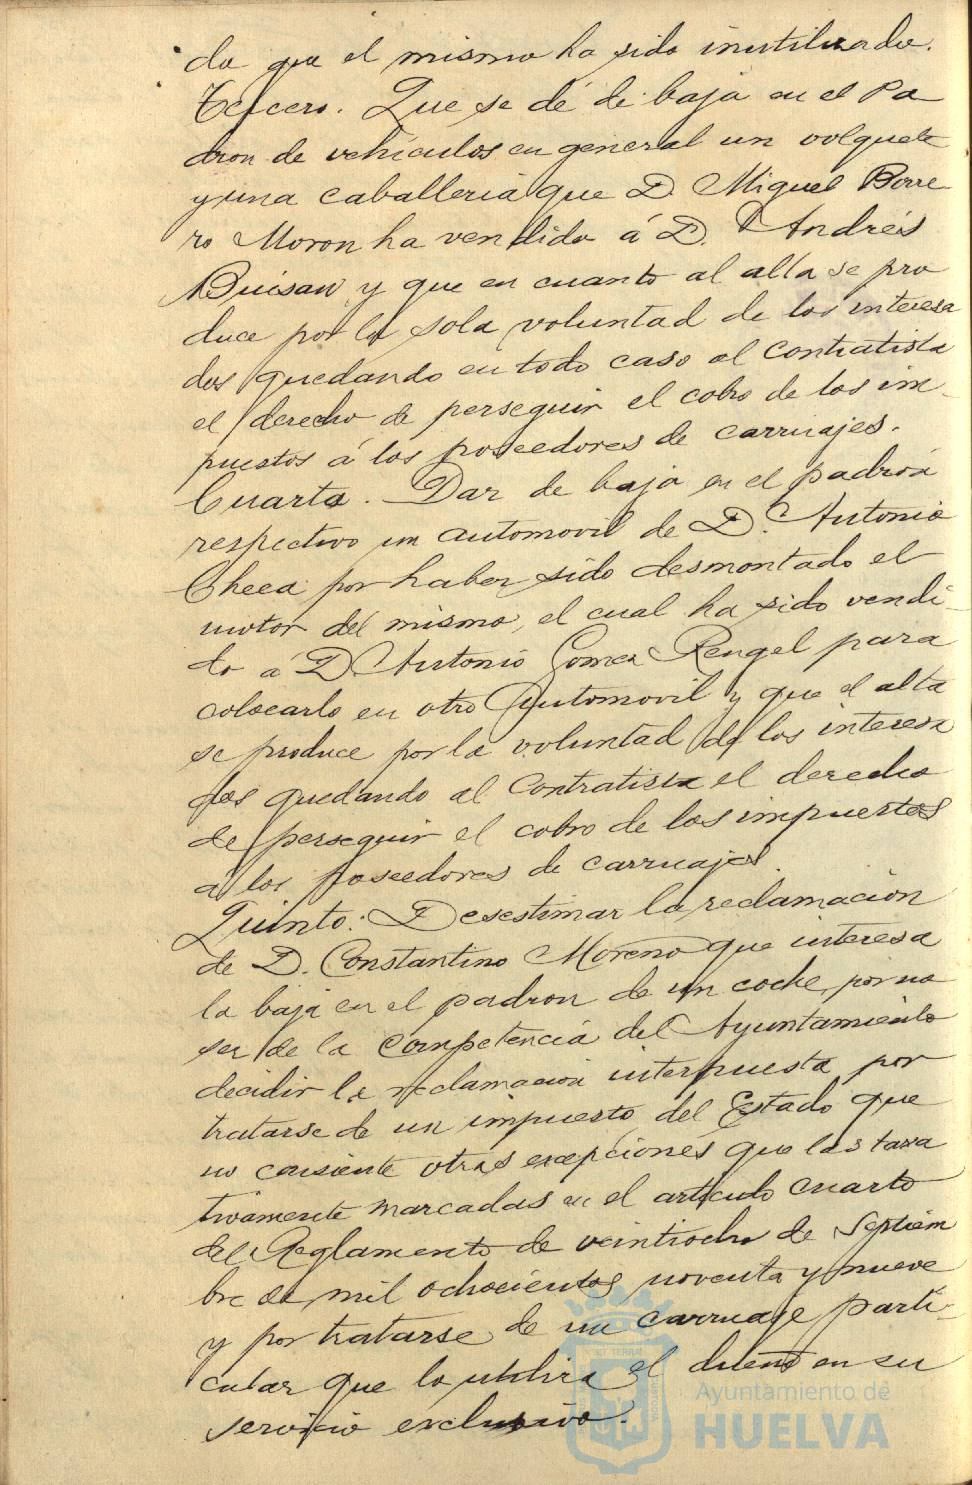 do que el mismo ha sido inutilizado.
Tercero. Que se dé de baja en el Pa
dron de vehiculos en general un volquete
y una caballeria que D. Miguel Borre
ro Moron ha vendido á D. Andrés
Buisan y que en cuanto al alta se pro
duce por la sola voluntad de los interesa
dos quedando en todo caso al contratista
el derecho de perseguir el cobro de los im
puestos á los poseedores de carruajes.
Cuarto. Dar de baja en el padrón
respectivo un automovil de D. Antonio
Checa por haber sido desmontado el
motor del mismo, el cual ha sido vendi-
do á D. Antonio Gomez Rengel para
colocarlo en otro Automovil y que el alta
se produce por la voluntad de los interesa
dos quedando al Contratista el derecho
de perseguir el cobro de los impuestos
a los poseedores de carruajes.
Quinto: Desestimar la reclamacion
de D. Constantino Moreno que interesa
la baja en el padron de un coche, por no
ser de la competencia del Ayuntamiento
decidir la reclamacion interpuesta por
tratarse de un impuesto del Estado que
no consiente otras excepciones que las taxa
tivamente marcadas en el articulo cuarto
del Reglamento de veintiocho de Septiem
bre de mil ochocientos noventa y nueve
y por tratarse de un carruage parti-
cular que lo utiliza el dueño en su
servicio exclusivo.
Ayuntamiento de
HUELVA